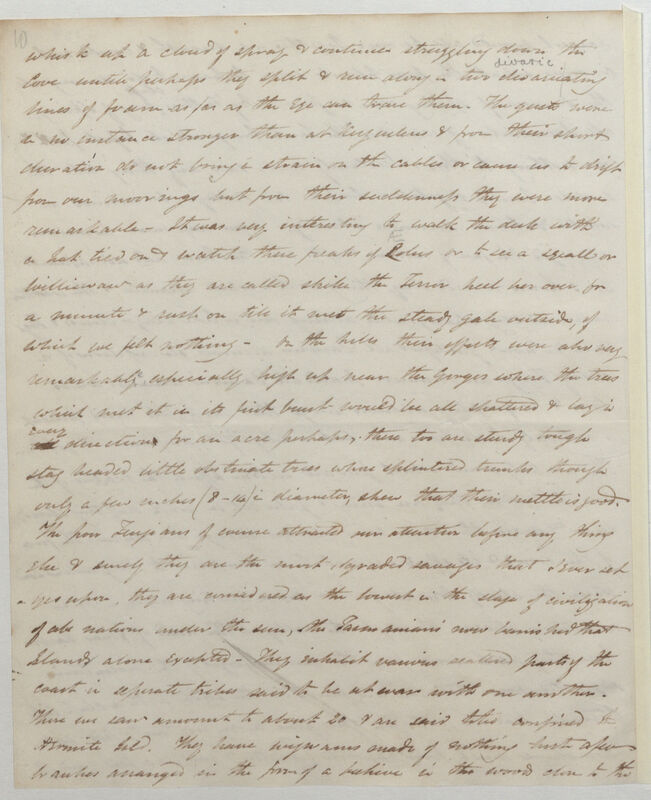 10
whisk up a cloud of spray & continue struggling down the
devaric
Cove until perhaps they split & run along in two divaricating
lines of foam as far as the Eye can trace them. The gusts were
in no instance stronger than at Kerguelens & from their short
duration do not bring a strain on the cables or cause us to drift
from our moorings but from their suddenness they were more
remarkable - It was very interesting to walk the deck with
a hat tied on & watch these freaks of Eolus or to see a squall or
Williewaw as they are called strike the Terror heel her over for
a minute & rush on till it met the steady gale outside, of
which we felt nothing - On the hills their effects were also very
remarkable, especially high up near the Gorges where the trees
which met it in its first burst would be all shattered & lay in
every
direction for an acre perhaps, these too are sturdy tough
stag headed little obstinate trees whose splintered trunks though
only a few inches (8-10) in diameter, shew that their mettle is good.
The poor Fuegians of course attracted our attention before any thing
else & surely they are the most degraded savages that I ever set
eyes upon, they are considered as the lowest in the stage of civilization
of all nations under the sun, the Tasmanians now banished that
Island alone excepted - They inhabit various scattered parts of the
coast in seperate tribes said to be at war with one another.
Those we saw amount to about 20 & are said to be confined to
Hermite Isld. They have wigwams made of nothing but a few
branches arranged in the form of a beehive in the wood close to the